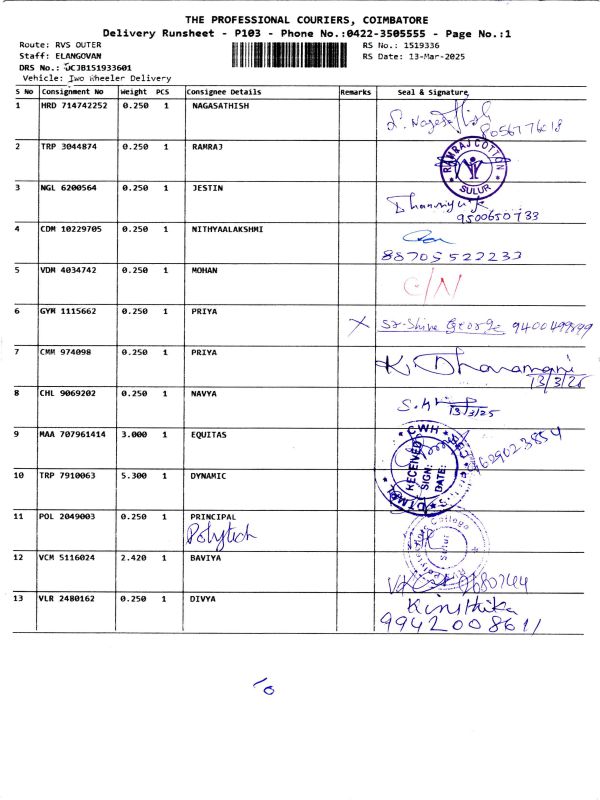 THE PROFESSIONAL COURIERS, COIMBATORE
Delivery Runsheet - P103 - Phone No.:0422-3505555 - Page No.:1
Route: RVS OUTER RS No.: 1519336
Staff: ELANGOVAN RS Date: 13-Mar-2025
DRS No.: UCJB151933601
Vehicle: Two Wheeler Delivery
S No Consignment No Weight PCS Consignee Details Remarks Seal & Signature
1 HRD 714742252 0.250 1 NAGASATHISH
8056776618
2 TRP 3044874 0.250 1 RAMRAJ RAMRAJ COTTON SULUR
3 NGL 6200564 0.250 1 JESTIN
9500650733
4 CDM 10229705 0.250 1 NITHYAALAKSHMI
88705 522233
5 VDM 4034742 0.250 1 MOHAN C/N
6 GYM 1115662 0.250 1 PRIYA X Sr-Shine George 9400499899
7 CMM 974098 0.250 1 PRIYA K. Dhanamani
13/3/25
8 CHL 9069202 0.250 1 NAVYA
13/3/25
9 MAA 707961414 3.000 1 EQUITAS CWH RECEIVED SIGN: DATE: 9629023854
10 TRP 7910063 5.300 1 DYNAMIC
11 POL 2049003 0.250 1 PRINCIPAL
Polytech Sulur
12 VCM 5116024 2.420 1 BAVIYA
13 VLR 2480162 0.250 1 DIVYA Kiruthika
9942008611